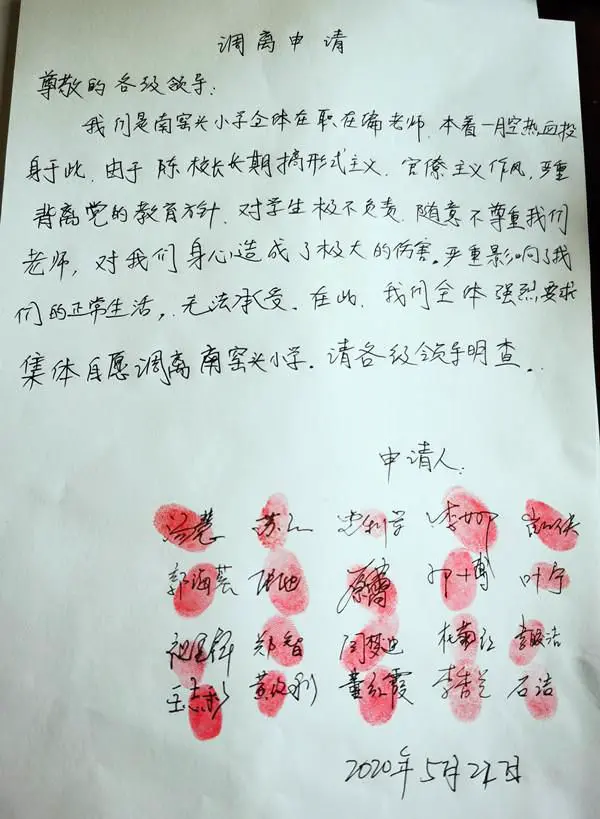 调离申请
尊敬的各级领导：
我们是南窑头小学全体在职在编老师，本着一腔热血投
身于此，由于陈校长长期搞形式主义、官僚主义作风，严重
背离党的教育方针，对学生极不负责，随意不尊重我们
老师，对我们身心造成了极大的伤害。严重影响了我
们的正常生活，无法承受。在此，我们全体强烈要求
集体自愿调离南窑头小学。请各级领导明查。
申请人：
李娜
郭海芸 叶宁
郑智 闫梦迪
董红霞 李香兰 石洁
2020年5月21日